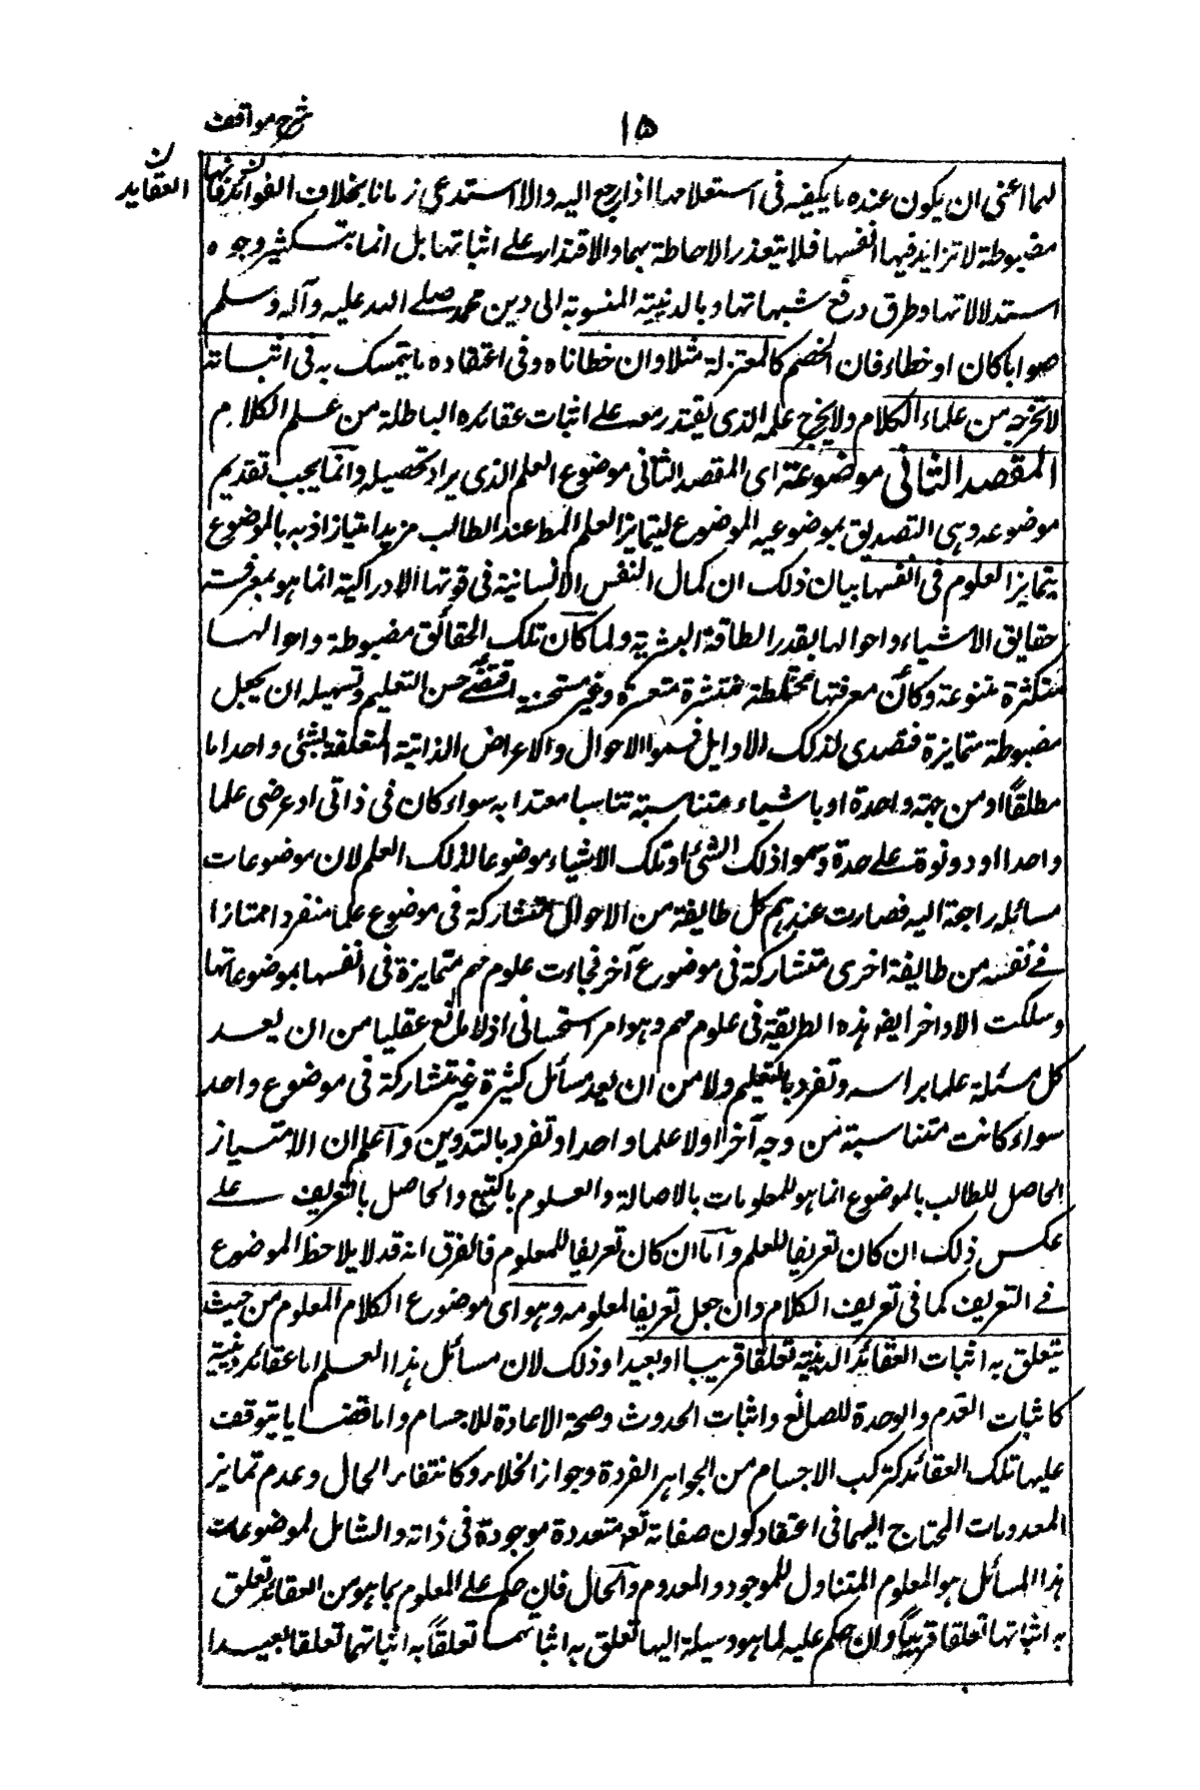 شرح مواقف
١٥
لها اعنى ان يكون عنده ما يكفيه فى استعلامها اذا رجع اليه والا استدعى زمانا بخلاف الفوائد فانها
ن العقايد
مضبوطة لا تزايد فيها انفسها فلا يتعذر الاحاطة بها والاقتدار على اثباتها بل انما يتكثر وجوه
استدلالاتها وطرق دفع شبهاتها وبالدينية المنسوبة الى دين محمد صلى الله عليه وآله وسلم
صوابا كان او خطاء فان الخصم كالمعتزلة مثلا وان خطاناه وفى اعتقاده ما يتمسك به فى اثباته
لا نخرجه من علماء الكلام ولا يخرج علمه الذى يقتدر معه على اثبات عقائده الباطلة من علم الكلام
المقصد الثانى موضوعه اى المقصد الثانى موضوع العلم الذى يراد تحصيله وانما يجب تقديم
موضوعه وهى التصديق بموضوعيه الموضوع ليتمايز العلم المط عند الطالب مزيد امتياز اذ به بالموضوع
يتمايز العلوم فى انفسها بيان ذلك ان كمال النفس الانسانية فى قوتها الادراكية انما هو بمعرفت
حقايق الاشياء واحوالها بقدر الطاقة البشرية ولما كان تلك الحقائق مضبوطة واحوالها
متكثرة متنوعة وكان معرفتها مختلطة منتشرة متعسرة وغير مستحسنة اقتضى حسن التعليم وتسهيله ان يجعل
مضبوطة متمايزة فتصدى لذلك الاوايل فسموا الاحوال والاعراض الذاتية المتعلقة بشئ واحد اما
مطلقاً او من جهة واحدة او باشياء متناسبة تناسبا معتدا به سواء كان فى ذاتى او عرضى علما
واحدا ودونوه على حدة وسموا ذلك الشئ او تلك الاشياء موضوعا لذلك العلم لان موضوعات
مسائله راجعة اليه فصارت عندهم كل طايفة من الاحوال متشاركة فى موضوع علما منفردا ممتازا
فى نفسه من طايفة اخرى متشاركة فى موضوع آخر فجاءت علومهم متمايزة فى انفسها بموضوعاتها
وسلكت الاواخر ايضا هذه الطريقة فى علومهم وهو امر استحسانى اذ لا مانع عقليا من ان يعد
كل مسئلة علما براسه وتفرد بالتعليم ولا من ان يعد مسائل كثيرة غير متشاركة فى موضوع واحد
سواء كانت متناسبة من وجه آخر اولا علما واحدا وتفرد بالتدوين وآعلم ان الامتياز
الحاصل للطالب بالموضوع انما هو للمعلومات بالاصالة والعلوم بالتبع والحاصل بالتعريف على
عكس ذلك ان كان تعريفا للعلم واما ان كان تعريفا للمعلوم فالفرق انه قد لا يلاحظ الموضوع
فى التعريف كما فى تعريف الكلام وان جعل تعريفا لمعلومه وهو اى موضوع الكلام المعلوم من حيث
يتعلق به اثبات العقائد الدينية تعلقا قريبا او بعيدا وذلك لان مسائل هذا العلم اما عقائد دينية
كاثبات القدم والوحدة للصانع واثبات الحدوث وصحة الاعادة للاجسام واما قضايا يتوقف
عليها تلك العقائد كتركب الاجسام من الجواهر الفردة وجواز الخلاء وكانتفاء الحال وعدم تمايز
المعدومات المحتاج اليهما فى اعتقاد كون صفاته تع متعددة موجودة فى ذاته والشامل لموضوعات
هذا المسائل هو المعلوم المتناول للموجود والمعدوم والحال فان حكم على المعلوم بما هو من العقائد تعلق
به اثباتها تعلقا قريباً وان حكم عليه لما هو وسيلة اليها تعلق به اثباتها تعلقاً به اثباتهما تعلقا بعيدا